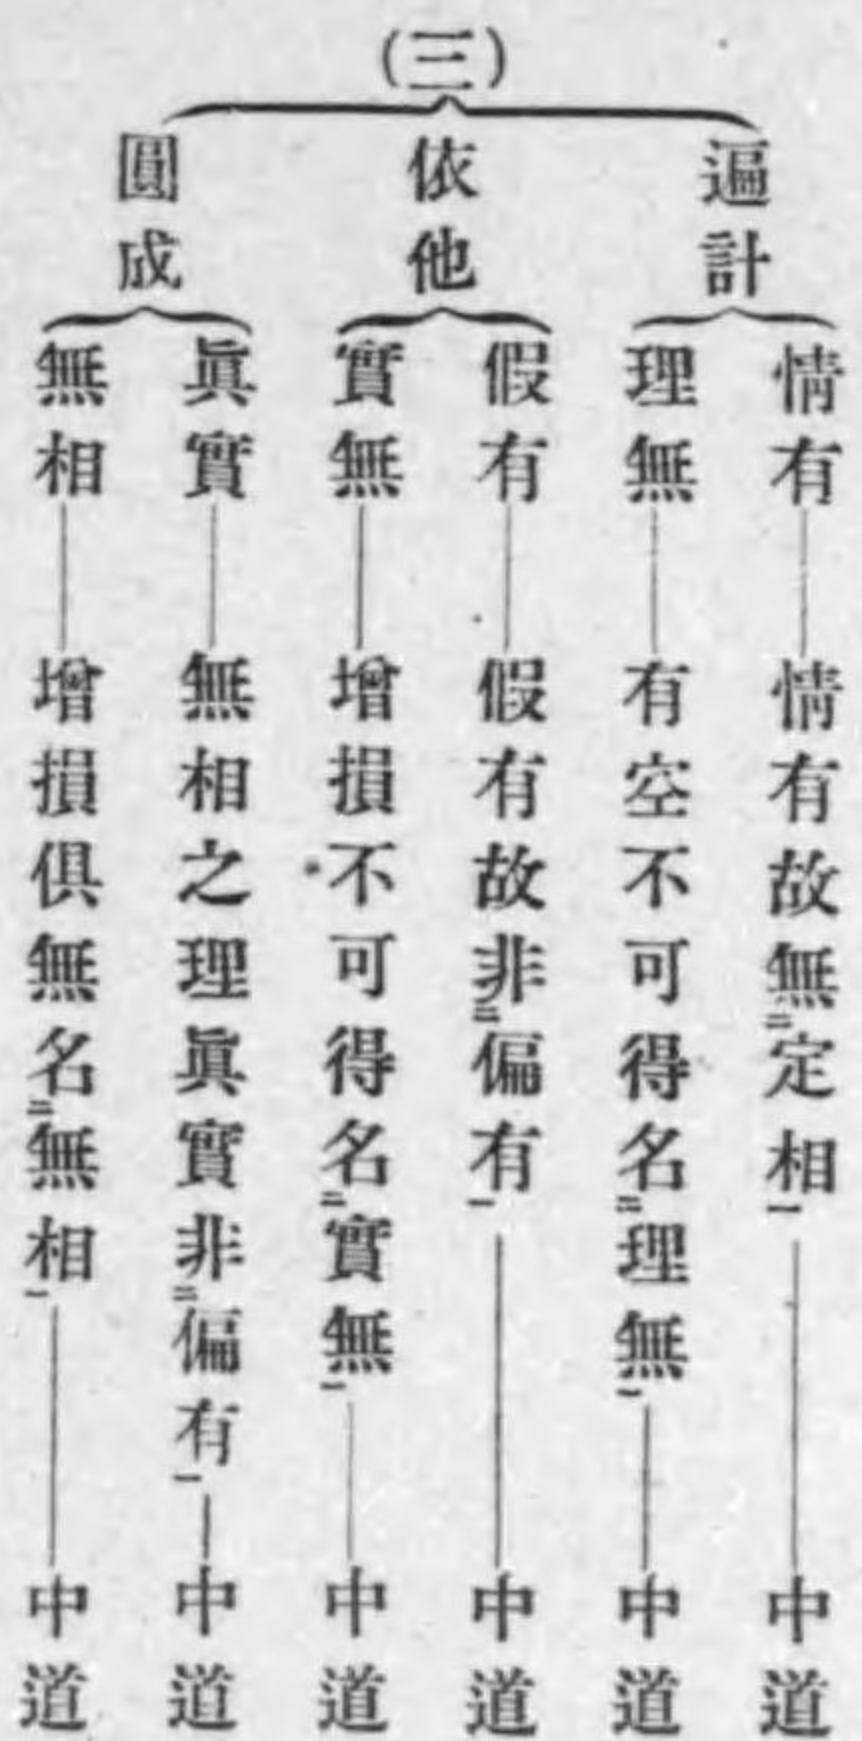 (三)
遍計
情有——情有故無㆓定相㆒——中道
理無——有空不可得名㆓理無㆒——中道
依他
假有——假有故非㆓偏有㆒——中道
實無——增損不可得名㆓實無㆒——中道
圓成
眞實——無相之理眞實非㆓偏有㆒——中道
無相——增損俱無名㆓無相㆒——中道